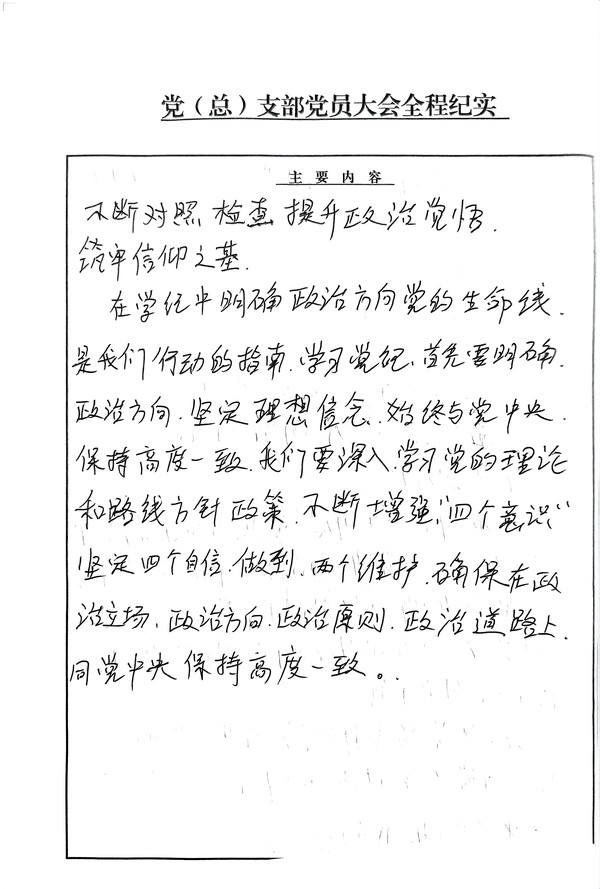 党（总）支部党员大会全程纪实
主要内容
不断对照检查提升政治觉悟.
筑牢信仰之基.
在学纪中明确政治方向党的生命线.
是我们行动的指南.学习党纪、首先要明确.
政治方向.坚定理想信念.始终与党中央.
保持高度一致.我们要深入学习党的理论
和路线方针政策.不断增强"四个意识"
坚定四个自信.做到.两个维护.确保在政
治立场、政治方向.政治原则.政治道路上.
同党中央保持高度一致。